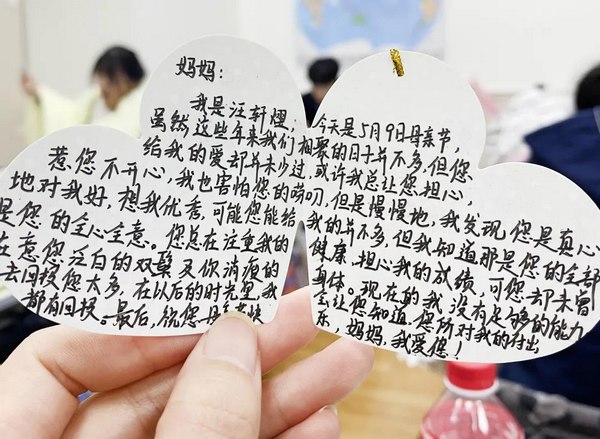 妈妈：
我是汪轩煜，今天是5月9日母亲节，
虽然这些年来我们相聚的日子并不多，但您
给我的爱却并未少过，或许我总让您担心，
惹您不开心，我也害怕您的唠叨，但是慢慢地，我发现您是真心
地对我好，想我优秀，可能您能给我的并不多，但我知道那是您的全部
是您的全心全意。您总在注重我的健康，担心我的成绩，可您却未曾
在意您泛白的双鬓及你消瘦的身体。现在的我，没有足够的能力
去回报您太多，在以后的时光里，我会让您知道，您所对我的付出
都有回报。最后，祝您母亲节快乐，妈妈，我爱您！